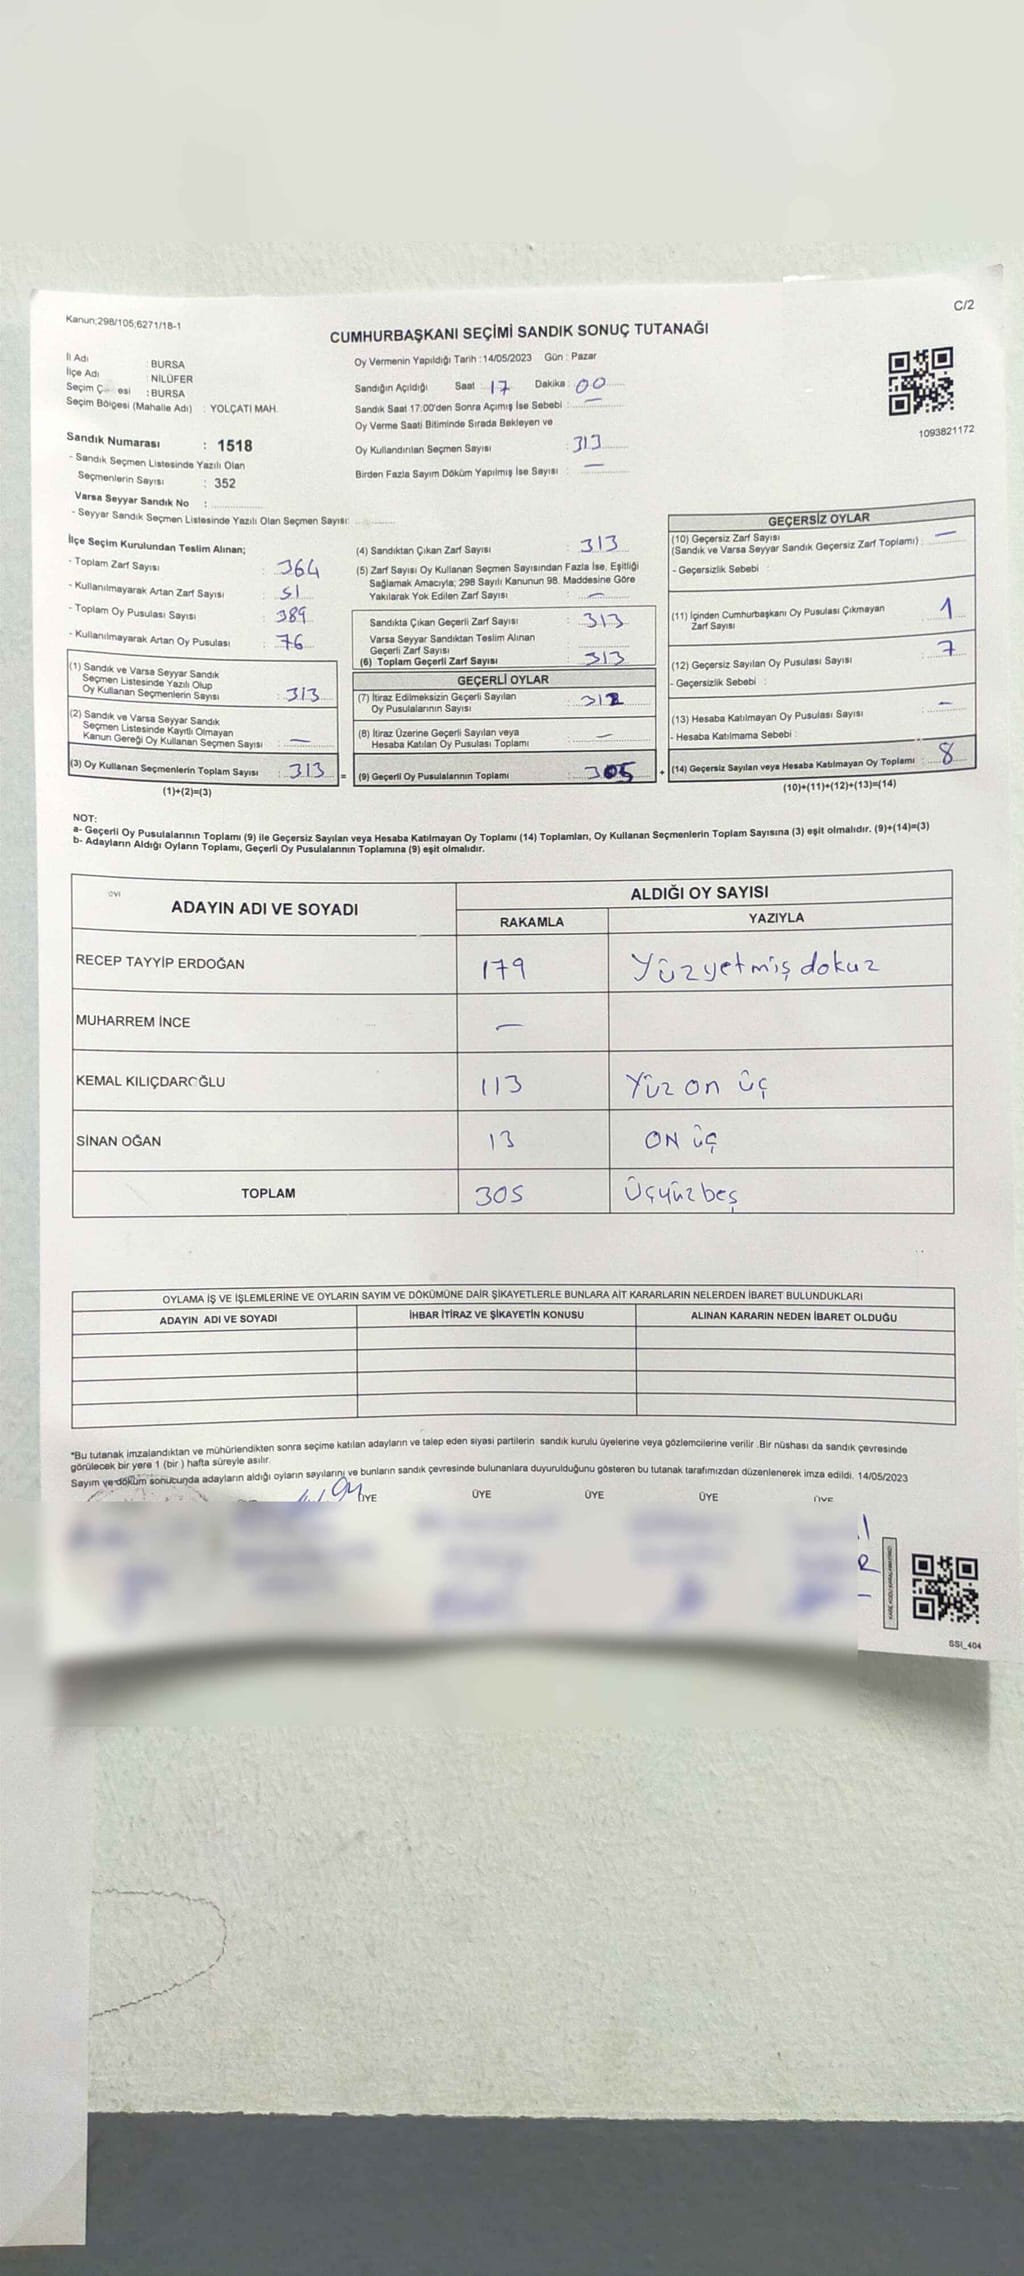 Kanun;298/105;6271/18-1
C/2
CUMHURBAŞKANI SEÇİMİ SANDIK SONUÇ TUTANAĞI
İl Adı : BURSA
İlçe Adı : NİLÜFER
Seçim esi : BURSA
Seçim Bölgesi (Mahalle Adı) : YOLÇATI MAH.
Sandık Numarası : 1518
- Sandık Seçmen Listesinde Yazılı Olan
Seçmenlerin Sayısı : 352
Varsa Seyyar Sandık No :
- Seyyar Sandık Seçmen Listesinde Yazılı Olan Seçmen Sayısı:
Oy Vermenin Yapıldığı Tarih : 14/05/2023 Gün : Pazar
Sandığın Açıldığı Saat : 17 Dakika : 00
Sandık Saat 17:00'den Sonra Açımış İse Sebebi : —
Oy Verme Saati Bitiminde Sırada Bekleyen ve
Oy Kullandırılan Seçmen Sayısı : 313
Birden Fazla Sayım Döküm Yapılmış İse Sayısı : —
1093821172
İlçe Seçim Kurulundan Teslim Alınan;
- Toplam Zarf Sayısı : 364
- Kullanılmayarak Artan Zarf Sayısı : 51
- Toplam Oy Pusulası Sayısı : 389
- Kullanılmayarak Artan Oy Pusulası : 76
(1) Sandık ve Varsa Seyyar Sandık
Seçmen Listesinde Yazılı Olup
Oy Kullanan Seçmenlerin Sayısı : 313
(2) Sandık ve Varsa Seyyar Sandık
Seçmen Listesinde Kayıtlı Olmayan
Kanun Gereği Oy Kullanan Seçmen Sayısı : —
(3) Oy Kullanan Seçmenlerin Toplam Sayısı : 313 =
(1)+(2)=(3)
(4) Sandıktan Çıkan Zarf Sayısı : 313
(5) Zarf Sayısı Oy Kullanan Seçmen Sayısından Fazla İse, Eşitliği
Sağlamak Amacıyla; 298 Sayılı Kanunun 98. Maddesine Göre
Yakılarak Yok Edilen Zarf Sayısı : —
Sandıkta Çıkan Geçerli Zarf Sayısı : 313
Varsa Seyyar Sandıktan Teslim Alınan
Geçerli Zarf Sayısı :
(6) Toplam Geçerli Zarf Sayısı : 313
GEÇERLİ OYLAR
(7) İtiraz Edilmeksizin Geçerli Sayılan
Oy Pusulalarının Sayısı : 312
(8) İtiraz Üzerine Geçerli Sayılan veya
Hesaba Katılan Oy Pusulası Toplamı : —
(9) Geçerli Oy Pusulalarının Toplamı : 305 +
GEÇERSİZ OYLAR
(10) Geçersiz Zarf Sayısı
(Sandık ve Varsa Seyyar Sandık Geçersiz Zarf Toplamı) : —
- Geçersizlik Sebebi :
(11) İçinden Cumhurbaşkanı Oy Pusulası Çıkmayan
Zarf Sayısı : 1
(12) Geçersiz Sayılan Oy Pusulası Sayısı : 7
- Geçersizlik Sebebi :
(13) Hesaba Katılmayan Oy Pusulası Sayısı : —
- Hesaba Katılmama Sebebi :
(14) Geçersiz Sayılan veya Hesaba Katılmayan Oy Toplamı : 8
(10)+(11)+(12)+(13)=(14)
NOT:
a- Geçerli Oy Pusulalarının Toplamı (9) ile Geçersiz Sayılan veya Hesaba Katılmayan Oy Toplamı (14) Toplamları, Oy Kullanan Seçmenlerin Toplam Sayısına (3) eşit olmalıdır. (9)+(14)=(3)
b- Adayların Aldığı Oyların Toplamı, Geçerli Oy Pusulalarının Toplamına (9) eşit olmalıdır.
ADAYIN ADI VE SOYADI
ALDIĞI OY SAYISI
RAKAMLA YAZIYLA
RECEP TAYYİP ERDOĞAN 179 Yüzyetmiş dokuz
MUHARREM İNCE —
KEMAL KILIÇDAROĞLU 113 Yüz on üç
SİNAN OĞAN 13 ON üç
TOPLAM 305 Üçyüz beş
OYLAMA İŞ VE İŞLEMLERİNE VE OYLARIN SAYIM VE DÖKÜMÜNE DAİR ŞİKAYETLERLE BUNLARA AİT KARARLARIN NELERDEN İBARET BULUNDUKLARI
ADAYIN ADI VE SOYADI İHBAR İTİRAZ VE ŞİKAYETİN KONUSU ALINAN KARARIN NEDEN İBARET OLDUĞU
*Bu tutanak imzalandıktan ve mühürlendikten sonra seçime katılan adayların ve talep eden siyasi partilerin sandık kurulu üyelerine veya gözlemcilerine verilir .Bir nüshası da sandık çevresinde
görülecek bir yere 1 (bir) hafta süreyle asılır.
Sayım ve döküm sonucunda adayların aldığı oyların sayılarını ve bunların sandık çevresinde bulunanlara duyurulduğunu gösteren bu tutanak tarafımızdan düzenlenerek imza edildi. 14/05/2023
ÜYE ÜYE ÜYE ÜYE ÜYE
SSI_404